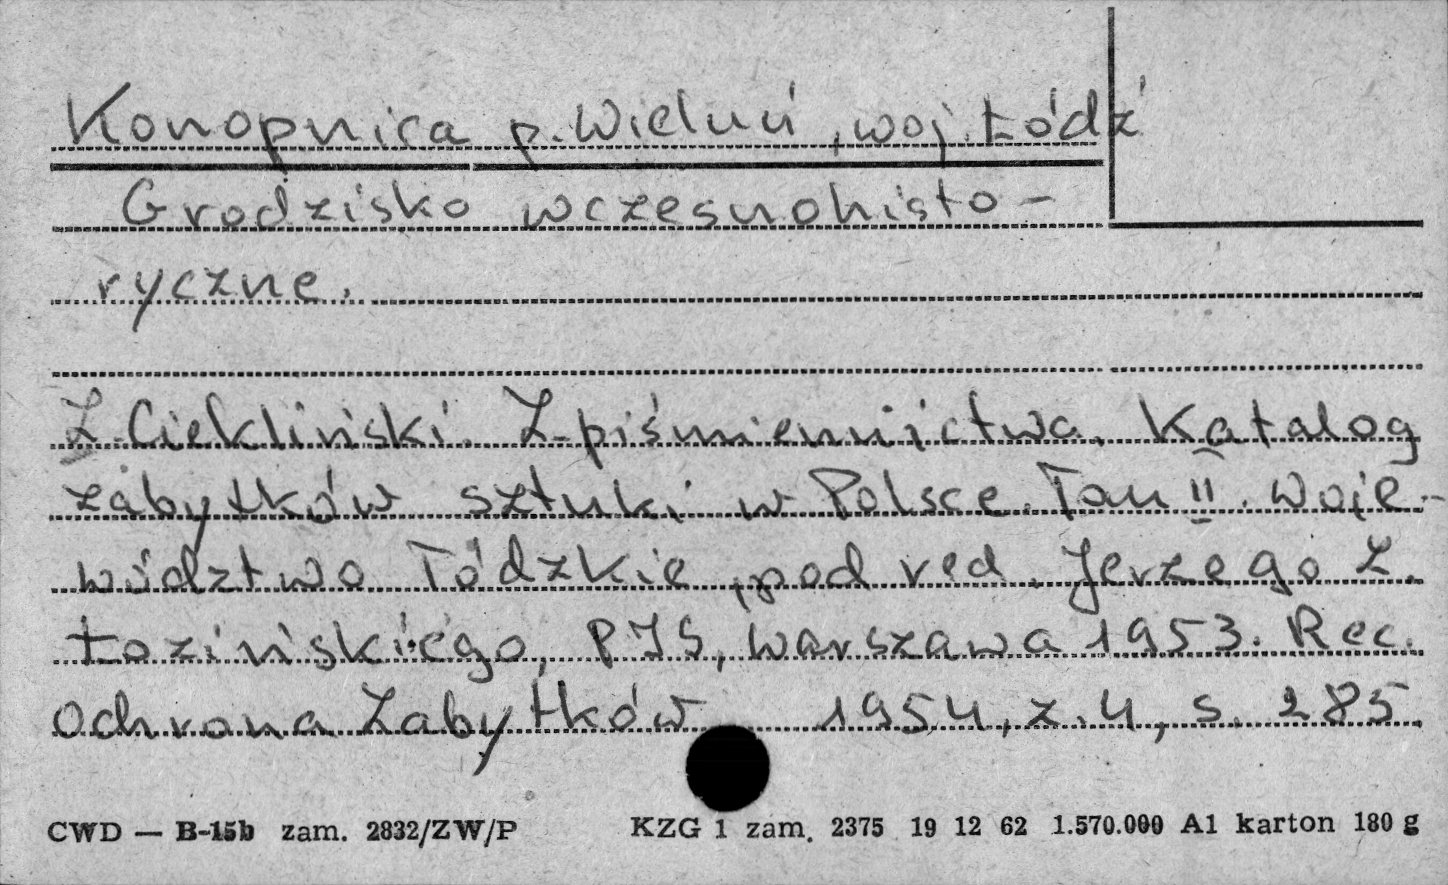 Konopnica p. Wieluń, woj. Łódź
Grodzisko wczesnohisto-
ryczne.
Z. Ciekliński. Z piśmiennictwa. Katalog
zabytków sztuki w Polsce. Tom II. Woje-
wództwo Łódzkie, pod red. Jerzego Z.
Łozińskiego, PIS, Warszawa 1953. Rec.
Ochrona Zabytków 1954, z. 4, s. 285.
CWD — B-15b zam. 2832/ZW/P KZG 1 zam. 2375 19 12 62 1.570.000 A1 karton 180 g